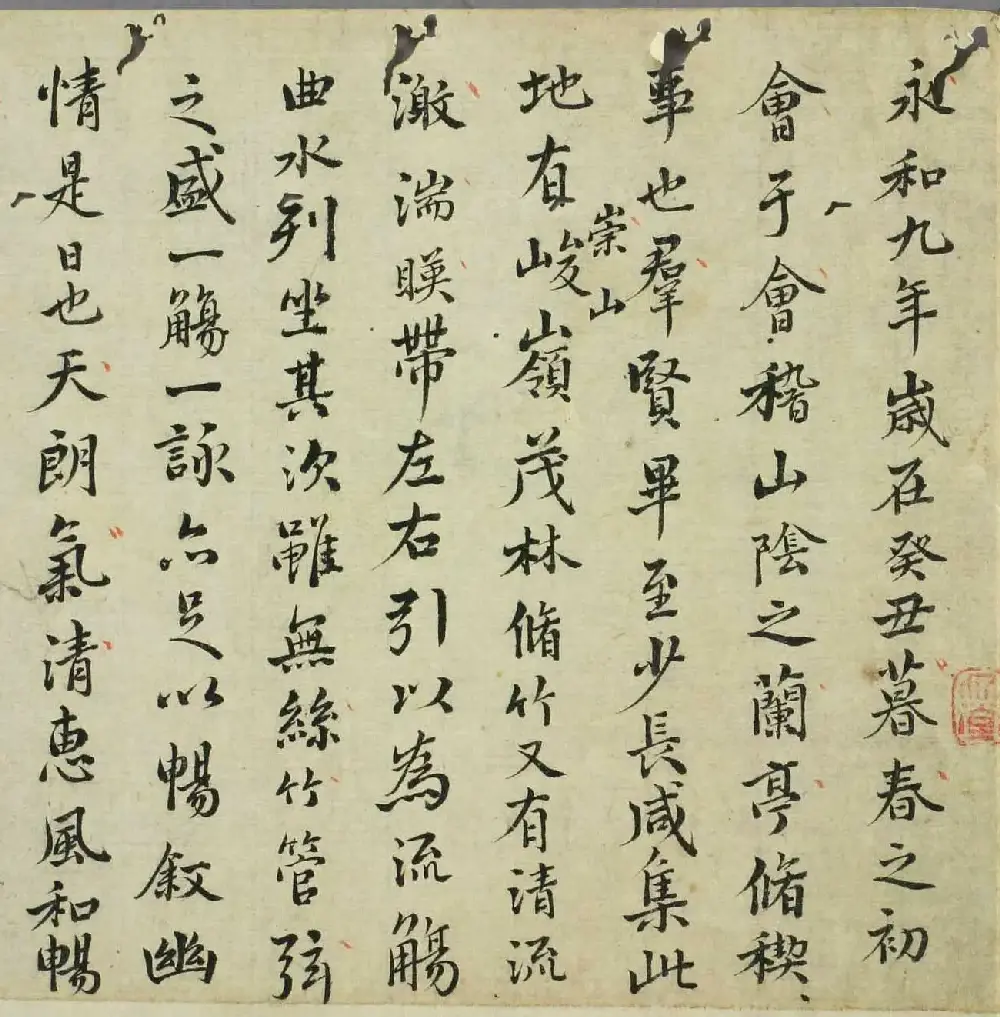 永和九年歲在癸丑暮春之初
會于會稽山陰之蘭亭脩稧
事也羣賢畢至少長咸集此
地有崇山峻嶺茂林脩竹又有清流
激湍暎帶左右引以為流觴
曲水列坐其次雖無絲竹管弦
之盛一觴一詠亦足以暢敘幽
情是日也天朗氣清惠風和暢